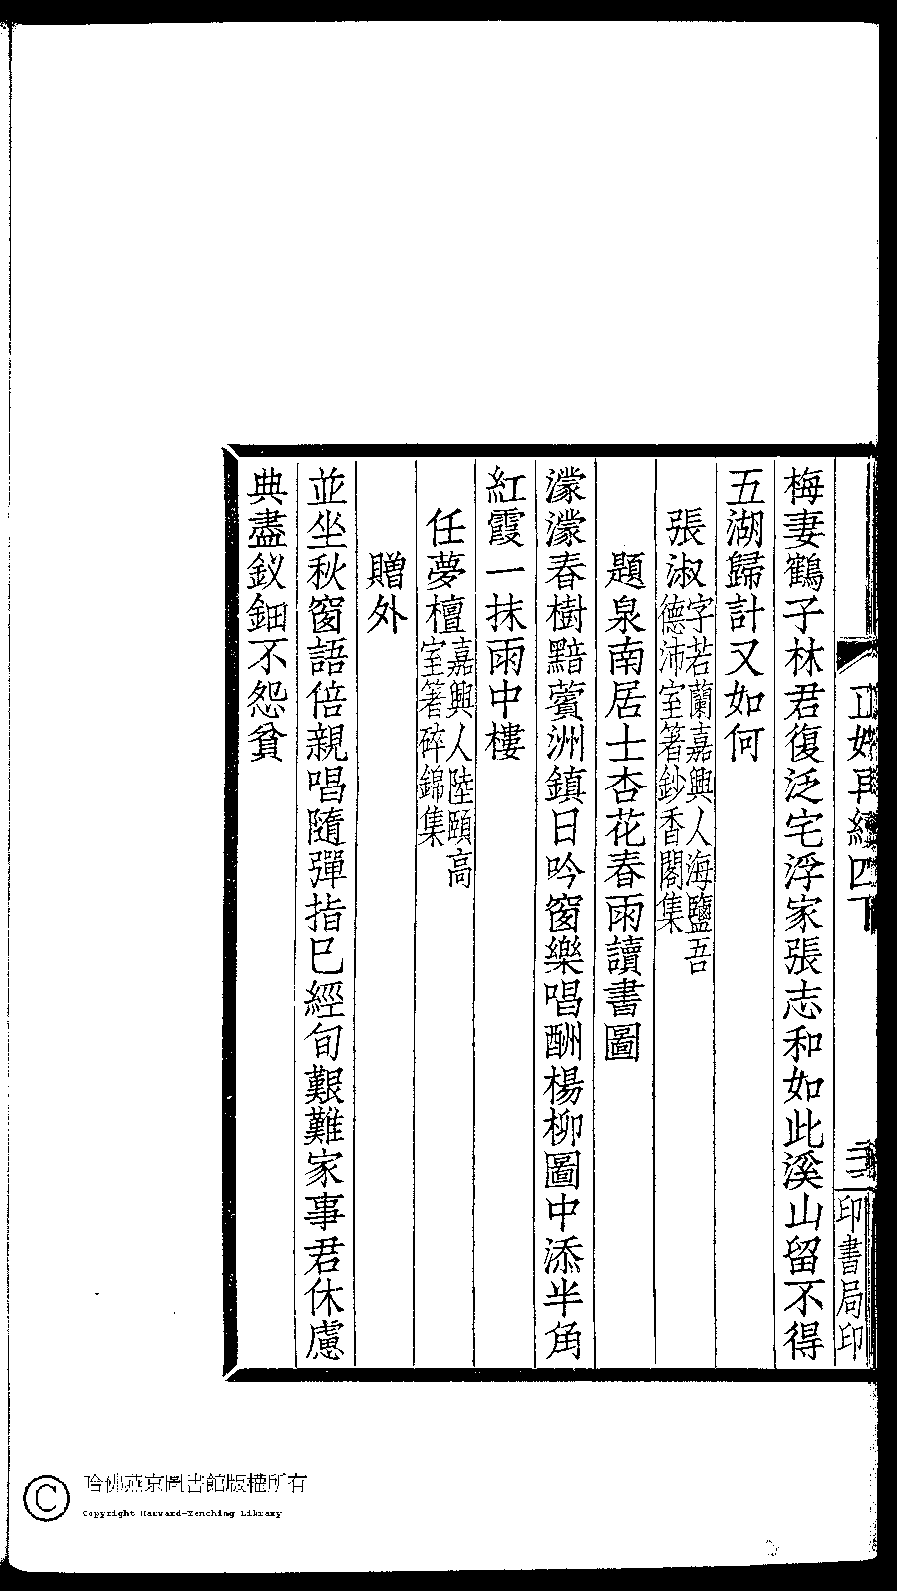 正始再續四下
印書局印
梅妻鶴子林君復泛宅浮家張志和如此溪山留不得
五湖歸計又如何
張淑
字若蘭嘉興人海鹽吾
德沛室箸鈔香閣集
題泉南居士杏花春雨讀書圖
濛濛春樹黯蘋洲鎮日吟窗樂唱酬楊柳圖中添半角
紅霞一抹雨中樓
任夢檀
嘉興人陸頤高
室箸碎錦集
贈外
並坐秋窗語倍親唱隨彈指巳經旬艱難家事君休慮
典盡釵鈿不怨貧
哈佛燕京圖書館版權所有
Copyright Harvard-Yenching Library